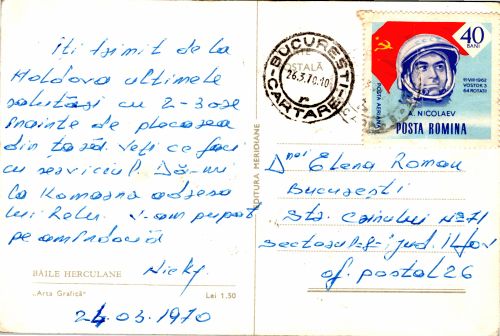 Îți trimit de la
Moldova ultimele
salutări cu 2-3 ore
înainte de plecarea
din țară. Veți ce faci
cu serviciul! Dă-mi
la Komarna adresa
lui Relu. V-am pupat
pe amîndouă
Nicky
BĂILE HERCULANE
„Arta Grafică" Lei 1,50
24.03.1970
EDITURA MERIDIANE
BUCUREȘTI
26.3.70.10
CARTARE
40
BANI
11-VIII-1962
VOSTOK 3
64 ROTAȚII
POȘTA AERIANĂ
A. NICOLAEV
POSTA ROMINA
Dnei Elena Roman
București
Str. Crinului No 71
sectorul 8 jud. Ilfov
of. postal 26